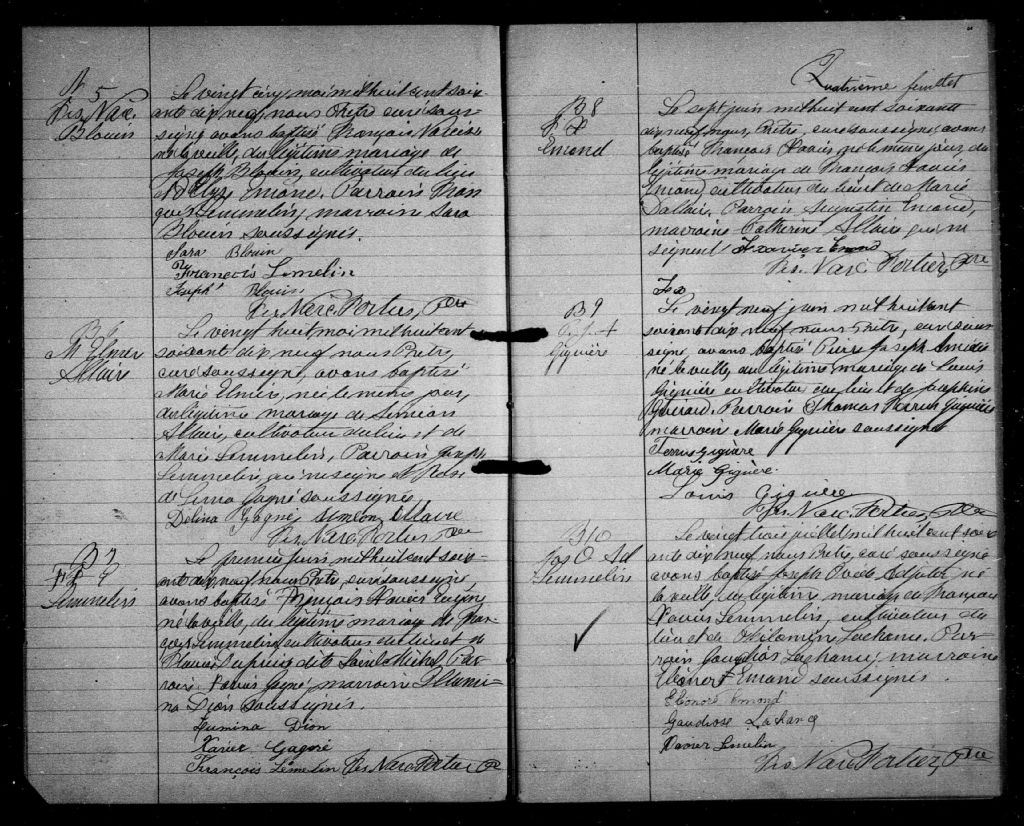 B 5
Frs. Narc.
Blouin
Le vingt cinq mai mil huit cent soix-
ante dix neuf, nous Prêtre curé sous-
signé avons baptisé François Narcisse
né la veille, du légitime mariage de
Joseph Blouin, cultivateur du lieu
et de Emond. Parrain Fran
çois Lemmelin, marraine Sara
Blouin soussignés.
Sara Blouin
François Lemelin
Joseph Blouin
Frs Narc. Fortier, Ptre
B 6
M. Elmir
Allaire
Le vingt huit mai mil huit cent
soixante dix neuf, nous Prêtre,
curé soussigné, avons baptisé
Marie Elmir, née le même jour,
du légitime mariage de Siméon
Allaire, cultivateur du lieu et de
Marie Lemmelin, Parrain Joseph
Lemmelin, qui ne signe et Rose
de Lima Gagné soussignée
Délina Gagné Siméon Allaire
Frs Narc. Fortier Ptre
B 7
F. X.
Lemmelin
Le premier juin mil huit cent soix-
ante dix neuf nous Prêtre curé soussigné,
avons baptisé François Xavier
né la veille, du légitime mariage de Fran-
çois Lemmelin, cultivateur du lieu et de
Dupuis dite Saint Michel. Par-
rain Xavier Gagné, marraine
na Dion soussignés.
Dion
Xavier Gagné
François Lemelin Frs Narc Fortier Ptre
Quatrième feuillet
B 8
F. X.
Emond
Le sept juin mil huit cent soixante
dix neuf, nous, Prêtre, curé soussigné, avons
baptisé François Xavier né le même jour, du
légitime mariage de François Xavier
Emond, cultivateur du lieu et de Marie
Dallaire. Parrain Augustin Emond,
marraine Catherine Allaire qui ne
signent F. xavier Emond
Frs. Narc Fortier, Ptre
B 9
P. J. A
Giguière
Le vingt neuf juin mil huit cent
soixante dix neuf nous Prêtre, curé sous-
signé, avons baptisé Pierre Joseph Amédé
né la veille, du légitime mariage de Louis
Giguière cultivateur du lieu et de Josephine
Parrain Thomas Ferrus Giguière
marraine Marie Giguière soussignés
Ferrus Giguère
Marie Giguère.
Louis Giguère
Frs. Narc. Fortier, Ptre
B 10
Jos O Ad
Lemmelin
Le vingt juillet mil huit cent soix-
ante dix neuf nous Prêtre, curé soussigné
avons baptisé Joseph Ovide Adjutor né
la veille, du légitime mariage de François
Xavier Lemmelin, cultivateur du
lieu et de Philomène Lachance. Par-
rain Gaudios Lachance, marraine
Eléonore Emond soussignés.
Eléonore Emond
Gaudiose Lachance
Xavier Lemelin
Frs Narc Fortier, Ptre